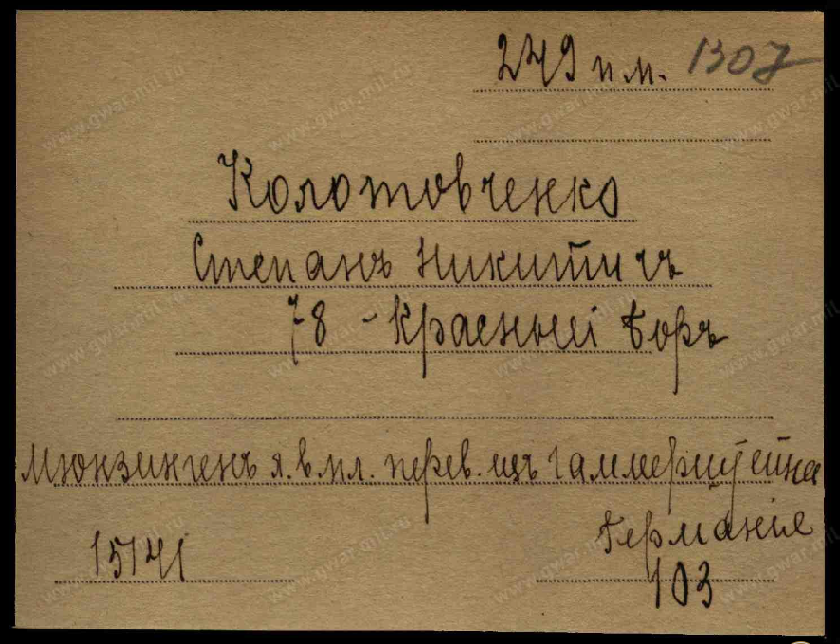 249 п м. 1307
Колотовченко
Степанъ Никитичъ
78 - Красный Боръ
Мюнзингенъ л. в. пл. перев. изъ Гаммерштейна
Германія
15141
103